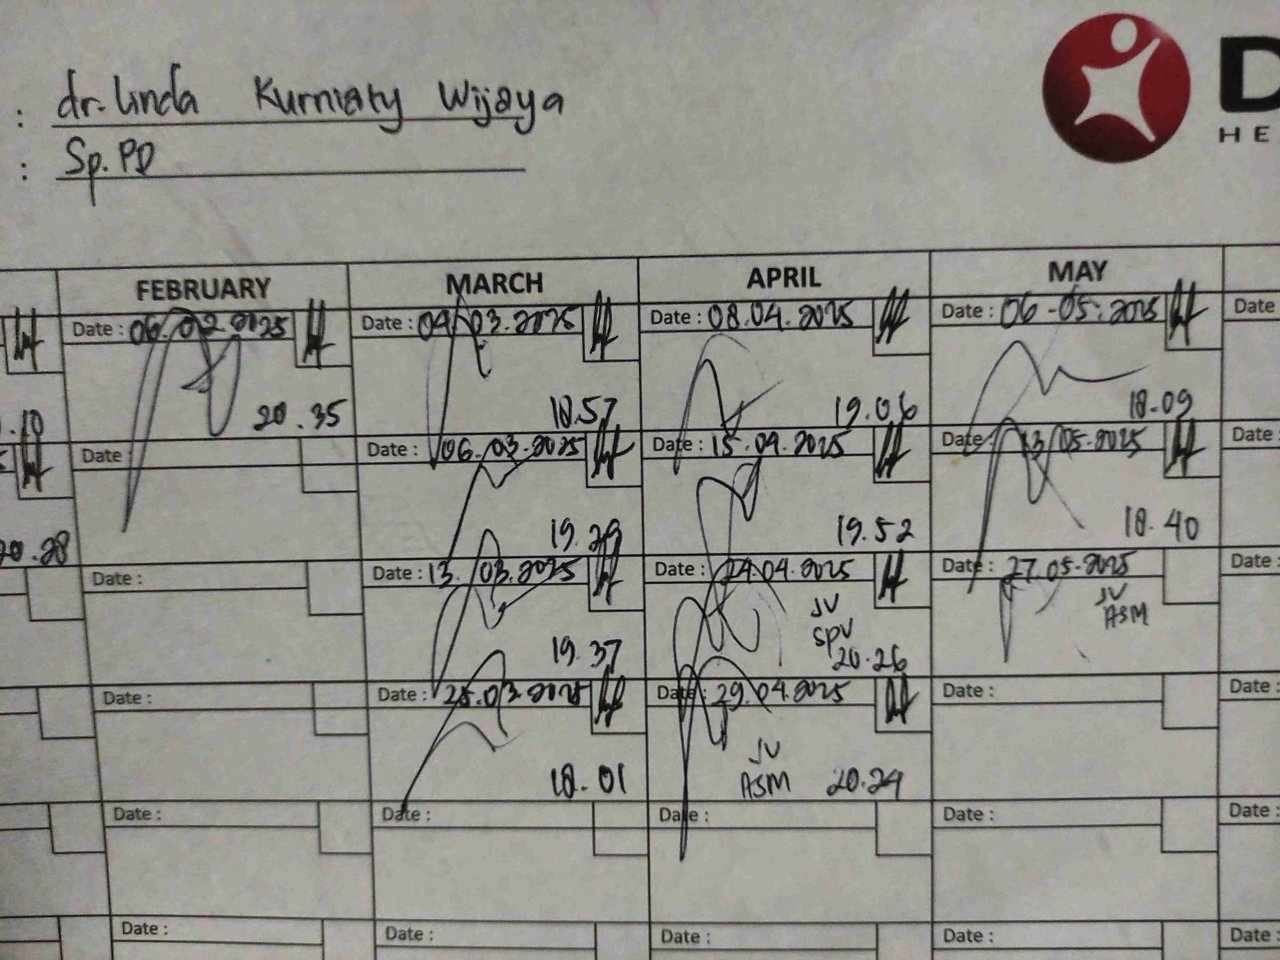 : dr. Linda Kurniaty Wijaya
: Sp.PD
D
HE
FEBRUARY MARCH APRIL MAY
Date : 06.02.2025 Date : 04.03.2025 Date : 08.04.2025 Date : 06-05-2025 Date
20.35 18.57 19.06 18.09
Date : Date : 06.03.2025 Date : 15.04.2025 Date : 13.05.2025 Date :
20.28 19.29 19.52 18.40
Date : Date : 13.03.2025 Date : 24.04.2025 Date : 27.05.2025 Date :
JV JV
SPV ASM
19.37 20.26
Date : Date : 25.03.2025 Date : 29.04.2025 Date : Date :
JV
18.01 ASM 20.24
Date : Date : Date : Date : Date :
Date : Date : Date : Date : Date :